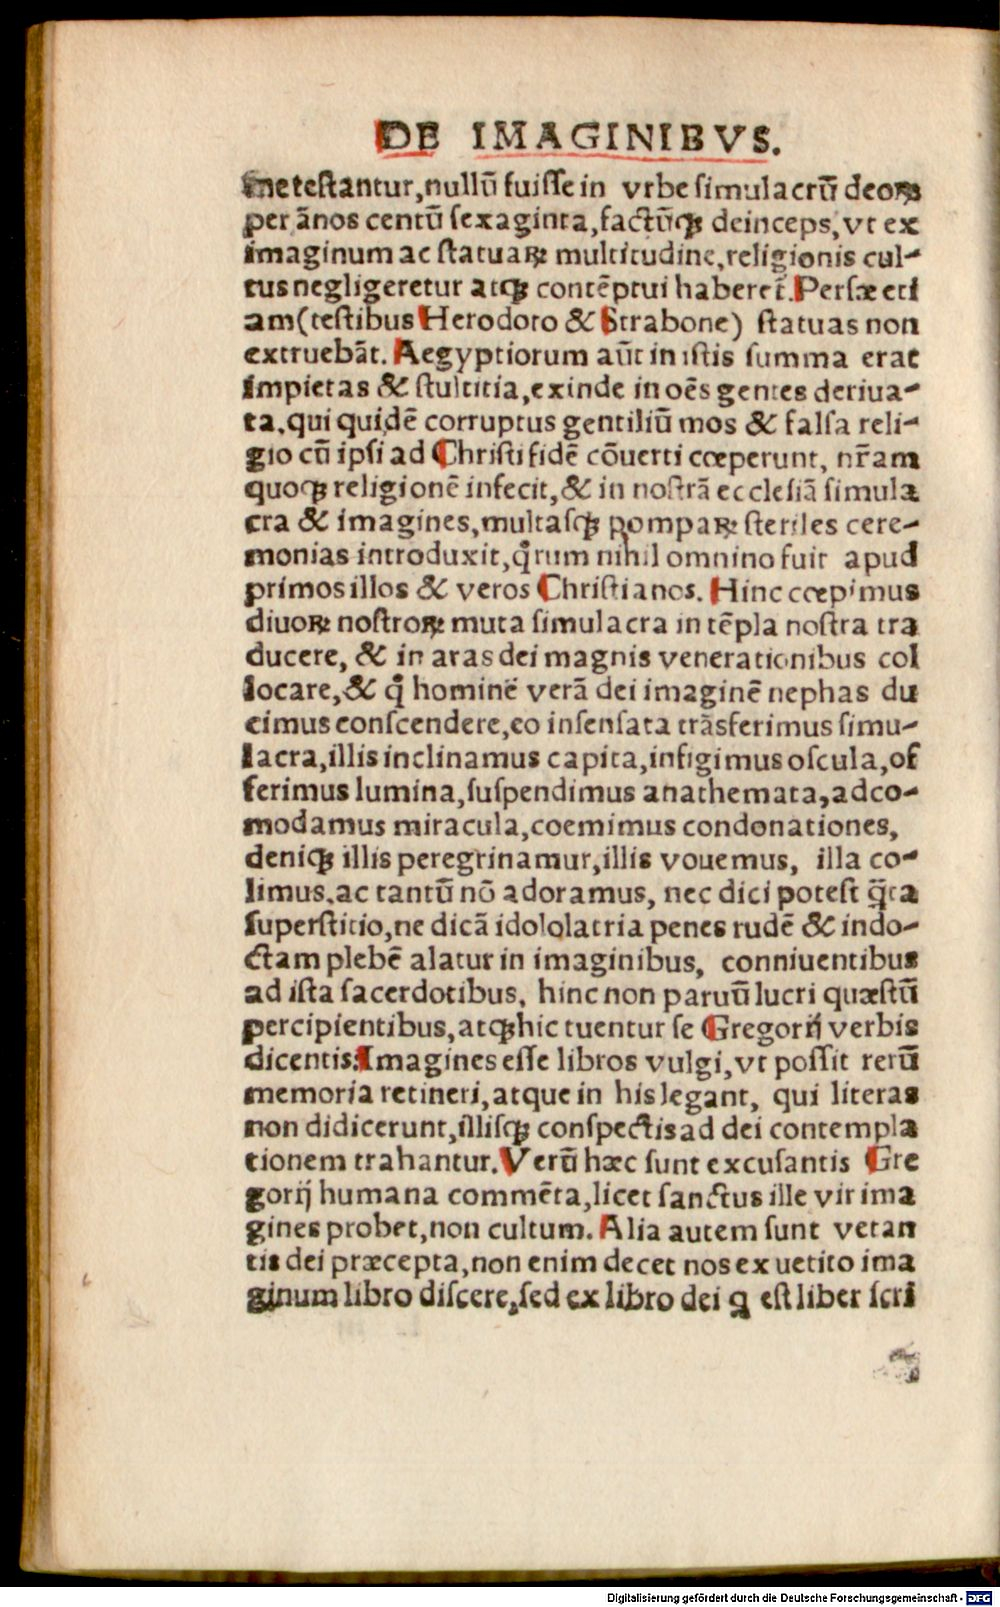 DE IMAGINIBVS.
me testantur, nullū fuiſſe in vrbe ſimulacrū deoꝝ
per ānos centū ſexaginta, factūqꝫ deinceps, vt ex
imaginum ac ſtatuaꝝ multitudine, religionis cul-
tus negligeretur atqꝫ contēptui haberet̄. Perſæ eti
am (teſtibus Herodoto & Strabone) ſtatuas non
extruebāt. Aegyptiorum aūt in iſtis ſumma erat
impietas & ſtultitia, exinde in oēs gentes deriua-
ta, qui quidē corruptus gentiliū mos & falſa reli-
gio cū ipſi ad Chriſti fidē cōuerti cœperunt, nr̄am
quoqꝫ religionē infecit, & in noſtrā eccleſiā ſimula
cra & imagines, multaſqꝫ pompaꝝ ſteriles cere-
monias introduxit, qͦrum nihil omnino fuit apud
primos illos & veros Chriſtianos. Hinc cœpimus
diuoꝝ noſtroꝝ muta ſimulacra in tēpla noſtra tra
ducere, & in aras dei magnis venerationibus col
locare, & qͦ hominē verā dei imaginē nephas du
cimus conſcendere, eo inſenſata trāsferimus ſimu-
lacra, illis inclinamus capita, infigimus oſcula, of
ferimus lumina, ſuſpendimus anathemata, adco-
modamus miracula, coemimus condonationes,
deniqꝫ illis peregrinamur, illis vouemus, illa co-
limus, ac tantū nō adoramus, nec dici poteſt q̄ta
ſuperſtitio, ne dicā idololatria penes rudē & indo-
ctam plebē alatur in imaginibus, conniuentibus
ad iſta ſacerdotibus, hinc non paruū lucri quæſtū
percipientibus, atqꝫ hic tuentur ſe Gregorij verbis
dicentis. Imagines eſſe libros vulgi, vt poſſit rerū
memoria retineri, atque in his legant, qui literas
non didicerunt, illiſqꝫ conſpectis ad dei contempla
tionem trahantur. Verū hæc ſunt excuſantis Gre
gorij humana commēta, licet ſanctus ille vir ima
gines probet, non cultum. Alia autem ſunt vetan
tis dei præcepta, non enim decet nos ex uetito ima
ginum libro diſcere, ſed ex libro dei ꝗ eſt liber ſcri
Digitalisierung gefördert durch die Deutsche Forschungsgemeinschaft - DFG